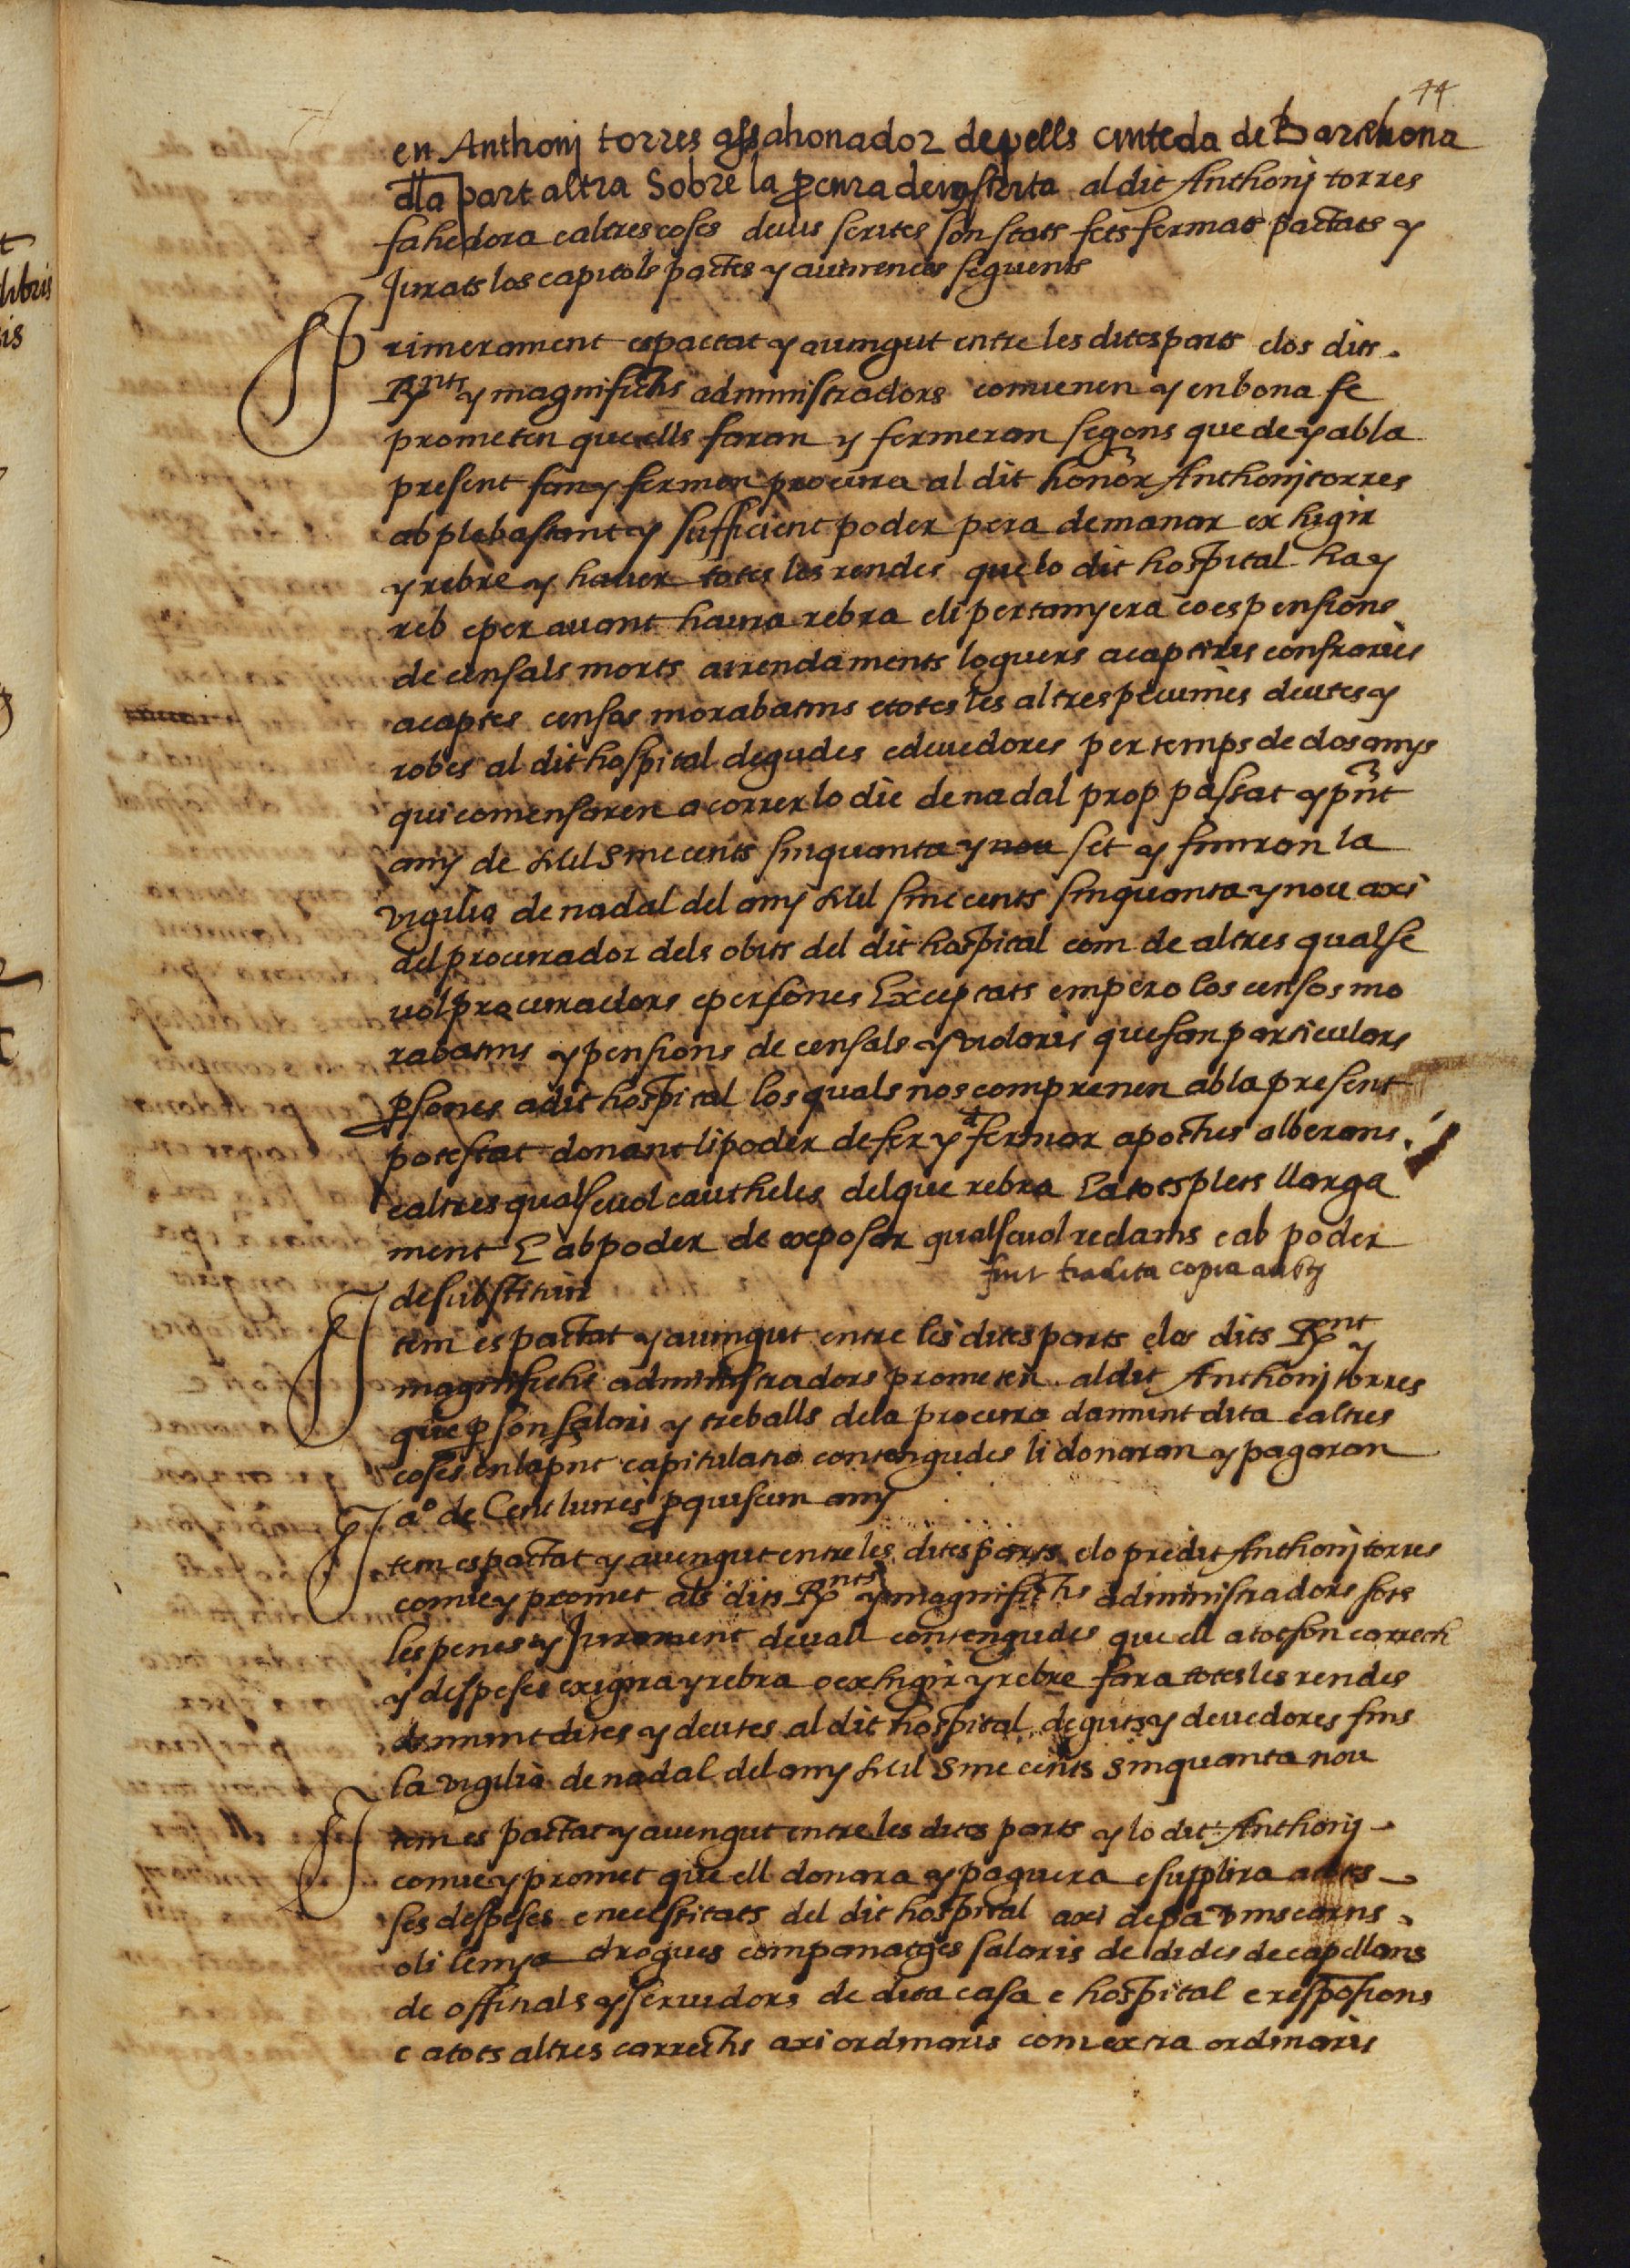 44
en Anthonj torres assahonador de pells ciuteda de Barchona
dla part altra Sobre la pcura deius scrita al dit Anthonj torres
fahedora e altres coses deius scrites son stats fets fermats pactats y
Jurats los capitols pactes y auinences seguents
Primerament es pactat y auingut entre les dites parts e los dits
Rnts y magnifichs administradors conuenen y en bona fe
prometen que ells faran y fermeran segons que de y ab la
present fan y fermen procura al dit honor Anthonj torres
ab ple bastant y sufficient poder pera demanar exhigir
y rebre y hauer totes les rendes que lo dit hospital ha y
reb e per auant haura rebra e li pertanyera ço es pensions
de censals morts arrendaments loguers acaptiris confraries
acaptes censos morabatins e totes les altres pecunies deutes y
robes al dit hospital degudes e deuedores per temps de dos anys
qui comensaren a correr lo die de nadal prop passat y pnt
any de Mil Sinc cents sinquanta y nou set y finiran la
vigilia de nadal del any Mil sinc cents sinquanta y nou axi
del procurador dels obits del dit hospital com de altres qualse
uol procuradors e persones Exceptats empero los censos mo
rabatins y pensions de censals y violaris que fan particulars
psones a dit hospital los quals nos comprenen ab la present
potestat donant li poder de fer y fermar apoches alberans
e altres qualseuol cautheles del que rebra E a tots plets llarga
ment E ab poder de exposar qualseuol reclams e ab poder
de substituir
fuit tradita copia
Item es pactat y auingut entre les dites parts e los dits Rnt y
magnifichs administradors prometen al dit Anthonj torres
que p son salari y treballs de la procura damunt dita e altres
coses en la pnt capitulatio contengudes li donaran y pagaran
a° de Cent liures p quiscun any
Item es pactat y auengut entre les dites parts e lo predit Anthonj torres
conue y promet als dits Rnts y magnifichs administradors sots
les penes y Jurament deuall contengudes que ell a tot son carrech
y despeses exigira y rebra o exhigir y rebre fara totes les rendes
demunt dites y deutes al dit hospital deguts y deuedores fins
la vigilia de nadal del any Mil Sinc cents sinquanta nou
Item es pactat y auengut entre les dites parts y lo dit Anthonj
conue y promet que ell donara y paguera e supplira a totes
ses despeses e necessitats del dit hospital axi de pa vins carns
oli lenya drogues companatges salaris de dides de capellans
de officials y seruidors de dita casa e hospital e resposions
e a tots altres carrechs axi ordinaris com extra ordinaris